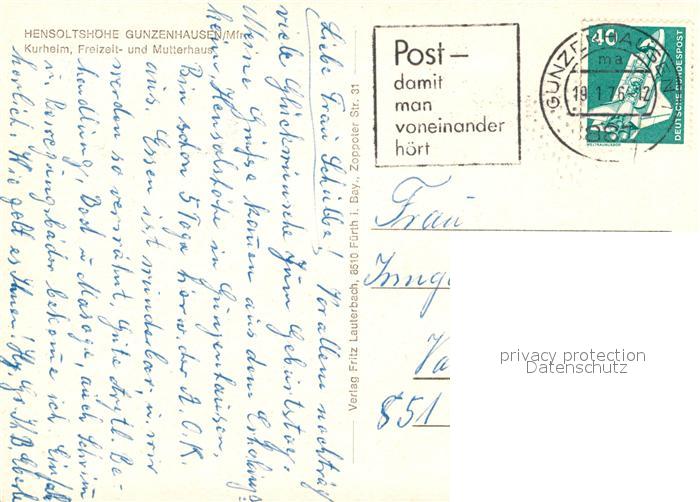 HENSOLTSHÖHE GUNZENHAUSEN/Mfr.
Kurheim, Freizeit- und Mutterhaus
Liebe Frau Schübbe! Vor allem nachträgl.
viele Glückwünsche zum Geburtstag.
Meine Grüße kommen aus dem Erholungs
heim Hensoltshöhe in Gunzenhausen.
Bin schon 5 Tage hier v. der A.O.K.
aus. Essen ist wunderbar, u. wir
werden so verwöhnt. Gute ärztl. Be-
handlung, Bad u. Massage, auch Schwimm
u. Bewegungsbäder bekomme ich. Einfach
herrlich. Wie geht es Ihnen? Hzl. Gr.
Verlag Fritz Lauterbach, 8510 Fürth i. Bay., Zoppoter Str. 31
Post –
damit
man
voneinander
hört
GUNZENHAUSEN
ma
19.1.76-12
40
DEUTSCHE BUNDESPOST
WELTRAUMLABOR
Frau
851
privacy protection
Datenschutz